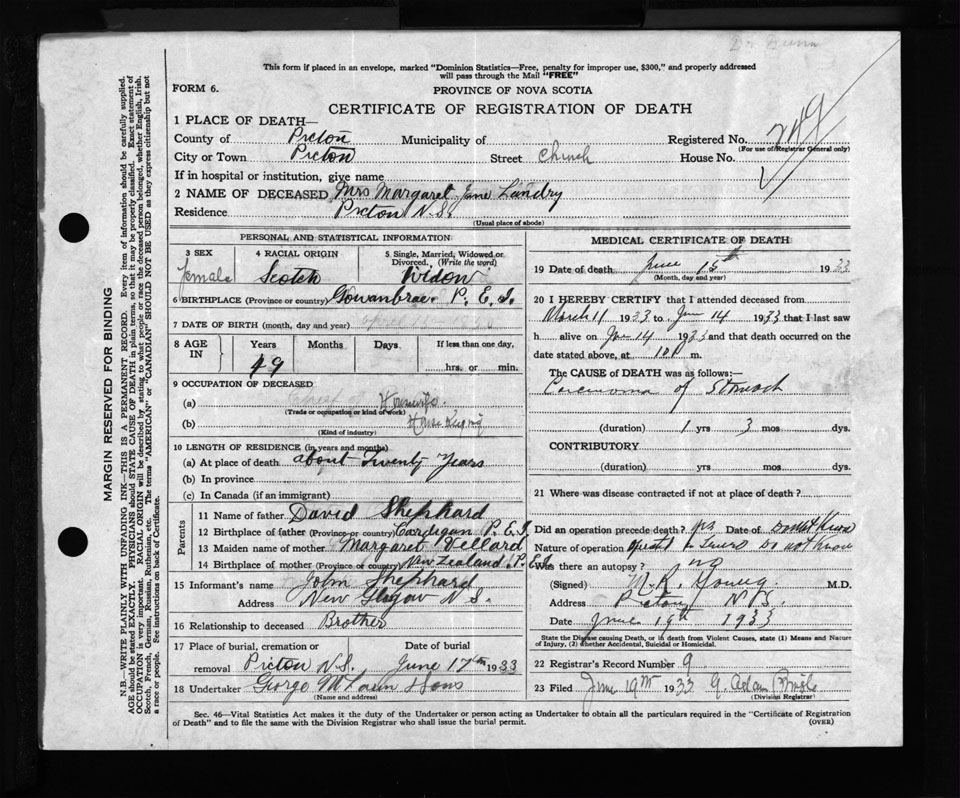 This form if placed in an envelope, marked "Dominion Statistics—Free, penalty for improper use, $300," and properly addressed
will pass through the Mail "FREE"
FORM 6. PROVINCE OF NOVA SCOTIA
CERTIFICATE OF REGISTRATION OF DEATH
1 PLACE OF DEATH—
County of Pictou Municipality of Registered No.
(For use of Registrar General only)
City or Town Pictou Street Church House No.
If in hospital or institution, give name
2 NAME OF DECEASED Mrs Margaret Jane Landry
Residence Pictou N.S.
(Usual place of abode)
PERSONAL AND STATISTICAL INFORMATION
3 SEX 4 RACIAL ORIGIN 5 Single, Married, Widowed or Divorced. (Write the word)
Female Scotch Widow
6 BIRTHPLACE (Province or country) Gowanbrae P. E. I.
7 DATE OF BIRTH (month, day and year)
8 AGE IN Years Months Days If less than one day,
49 hrs. or min.
9 OCCUPATION OF DECEASED
(a) Housewife
(Trade or occupation or kind of work)
(b) House Keeping
(Kind of industry)
10 LENGTH OF RESIDENCE (in years and months)
(a) At place of death about Twenty Years
(b) In province
(c) In Canada (if an immigrant)
Parents
11 Name of father David Shephard
12 Birthplace of father (Province or country) Cardigan P.E.I.
13 Maiden name of mother Margaret Vellard
14 Birthplace of mother (Province or country) New Zealand P.E.I.
15 Informant's name John Shephard
Address New Glasgow N.S.
16 Relationship to deceased Brother
17 Place of burial, cremation or
removal Pictou N.S. June 17th 1933
18 Undertaker George McLaren & Sons
(Name and address)
MEDICAL CERTIFICATE OF DEATH
19 Date of death June 15th 1933
(Month, day and year)
20 I HEREBY CERTIFY that I attended deceased from
March 11 1933 to Jun 14 1933 that I last saw
h alive on Jun 14 1933 and that death occurred on the
date stated above, at m.
The CAUSE OF DEATH was as follows:
Carcinoma of Stomach
(duration) 1 yrs 3 mos dys.
CONTRIBUTORY
(duration) yrs. mos. dys.
21 Where was disease contracted if not at place of death?
Did an operation precede death? yes Date of Do not know
Nature of operation Do not know
Was there an autopsy? no
(Signed) M.R. Young M.D.
Address Pictou N.S.
Date June 19th 1933
State the Disease causing Death, or in death from Violent Causes, state (1) Means and Nature
of Injury, (2) whether Accidental, Suicidal or Homicidal.
22 Registrar's Record Number 9
23 Filed June 19th 1933 G. Adam
(Division Registrar)
Sec. 46—Vital Statistics Act makes it the duty of the Undertaker or person acting as Undertaker to obtain all the particulars required in the "Certificate of Registration
of Death" and to file the same with the Division Registrar who shall issue the burial permit. (OVER)
MARGIN RESERVED FOR BINDING
N.B.—WRITE PLAINLY WITH UNFADING INK—THIS IS A PERMANENT RECORD. Every item of information should be carefully supplied.
AGE should be stated EXACTLY. PHYSICIANS should STATE CAUSE OF DEATH in plain terms, so that it may be properly classified. Exact statement of
OCCUPATION is very important. RACIAL ORIGIN will be described by stating to what people or race the deceased person belonged, whether English, Irish,
Scotch, French, German, Russian, Ruthenian, etc. The terms "AMERICAN" or "CANADIAN" SHOULD NOT BE USED as they express citizenship but not
a race or people. See instructions on back of Certificate.